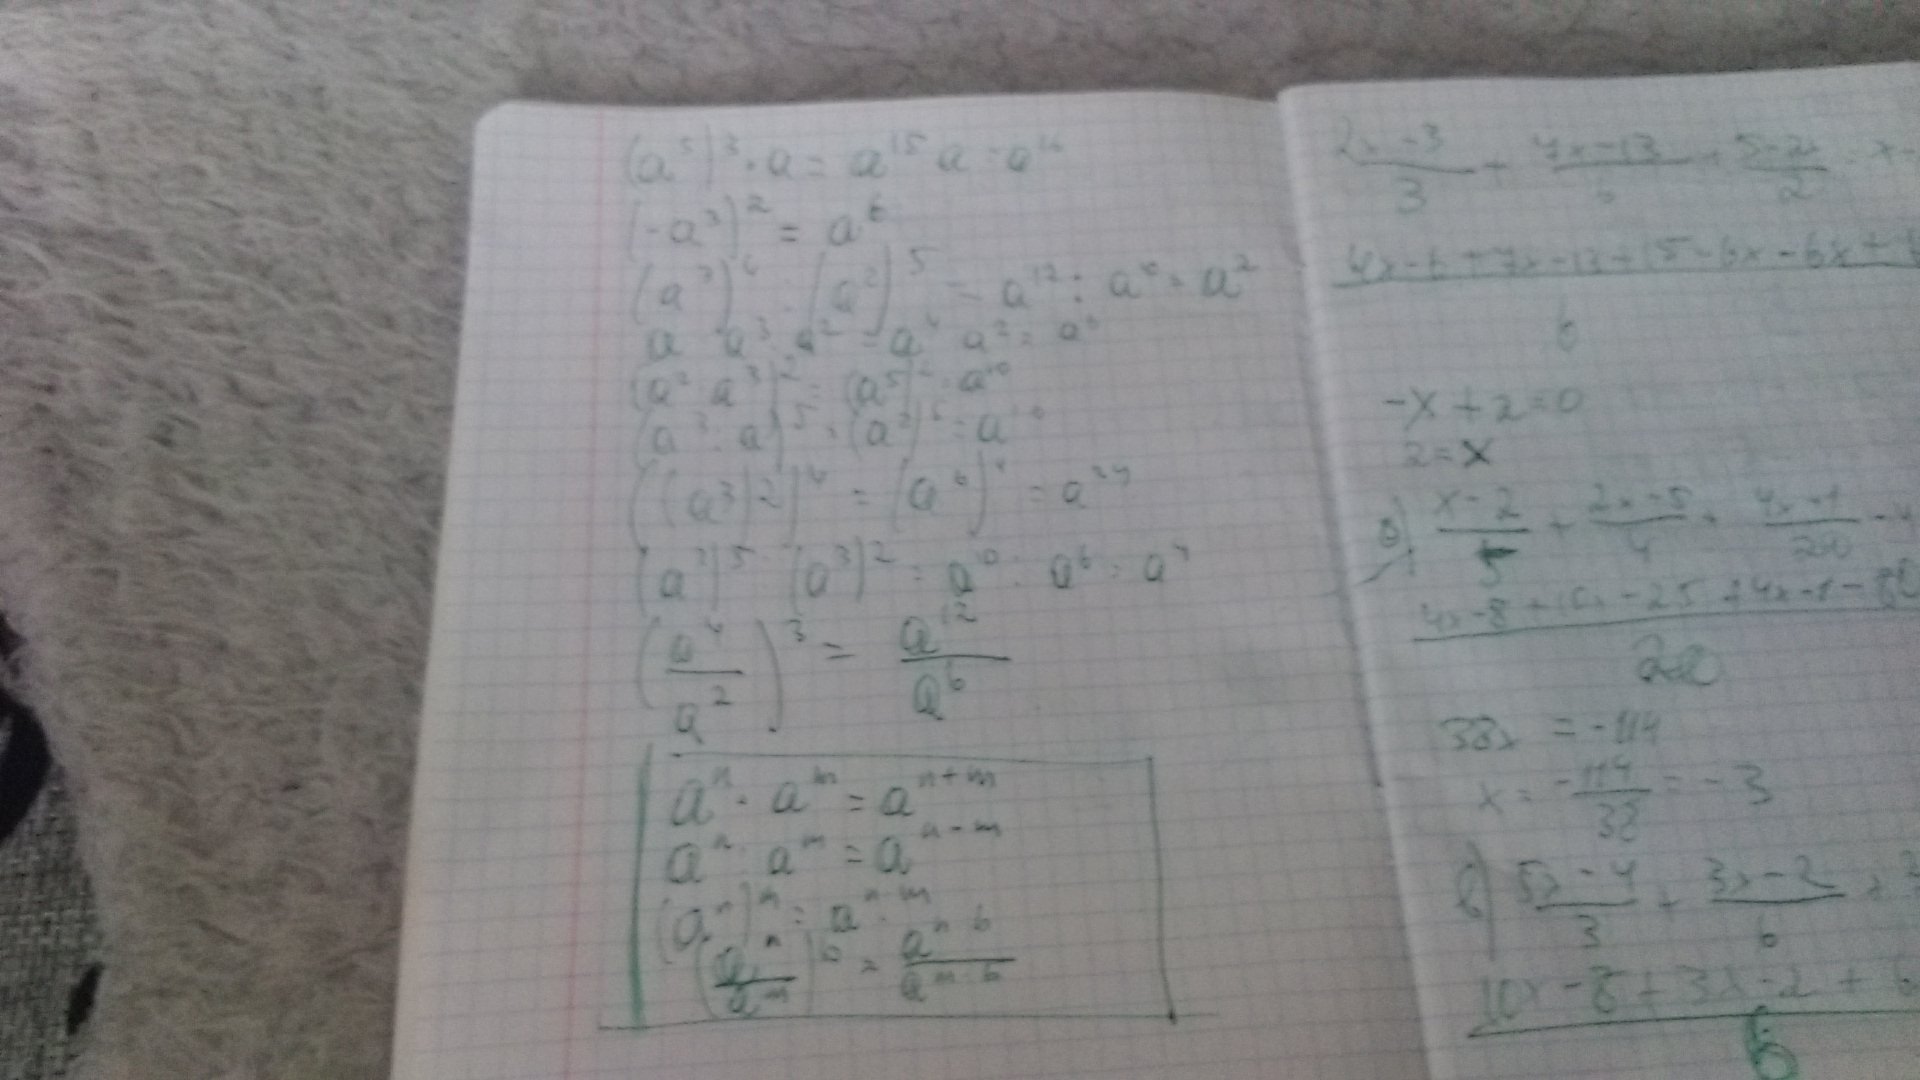 (a⁵)³ · a = a¹⁵ a = a¹⁶
(-a³)² = a⁶
(a³)⁴ : (a²)⁵ = a¹² : a¹⁰ = a²
(a² · a³)² = (a⁵)² = a¹⁰
(a³ : a)⁵ = (a²)⁵ = a¹⁰
((a³)2)⁴ = (a⁶)⁴ = a²⁴
(a²)⁵ : (a³)² = a¹⁰ : a⁶ = a⁴
(a⁴/a²)³ = a¹²/a⁶
aⁿ · aᵐ = aⁿ⁺ᵐ
aⁿ : aᵐ = aⁿ⁻ᵐ
(aⁿ)ᵐ = aⁿ·ᵐ
(aⁿ/aᵐ)ᵇ = aⁿ·ᵇ/aᵐ·ᵇ
(2x-3)/3 + (7x-13)/6 + (5-2x)/2 = x-
4x-6+7x-13+15-6x-6x+6
6
-x+2=0
2=x
(x-2)/5 + (2x-5)/4 + (4x-1)/20
4x-8+10x-25+4x-1-80
20
38x = -114
x = -114/38 = -3
(5x-4)/3 + (3x-2)/6
10x-8+3x-2+6
6